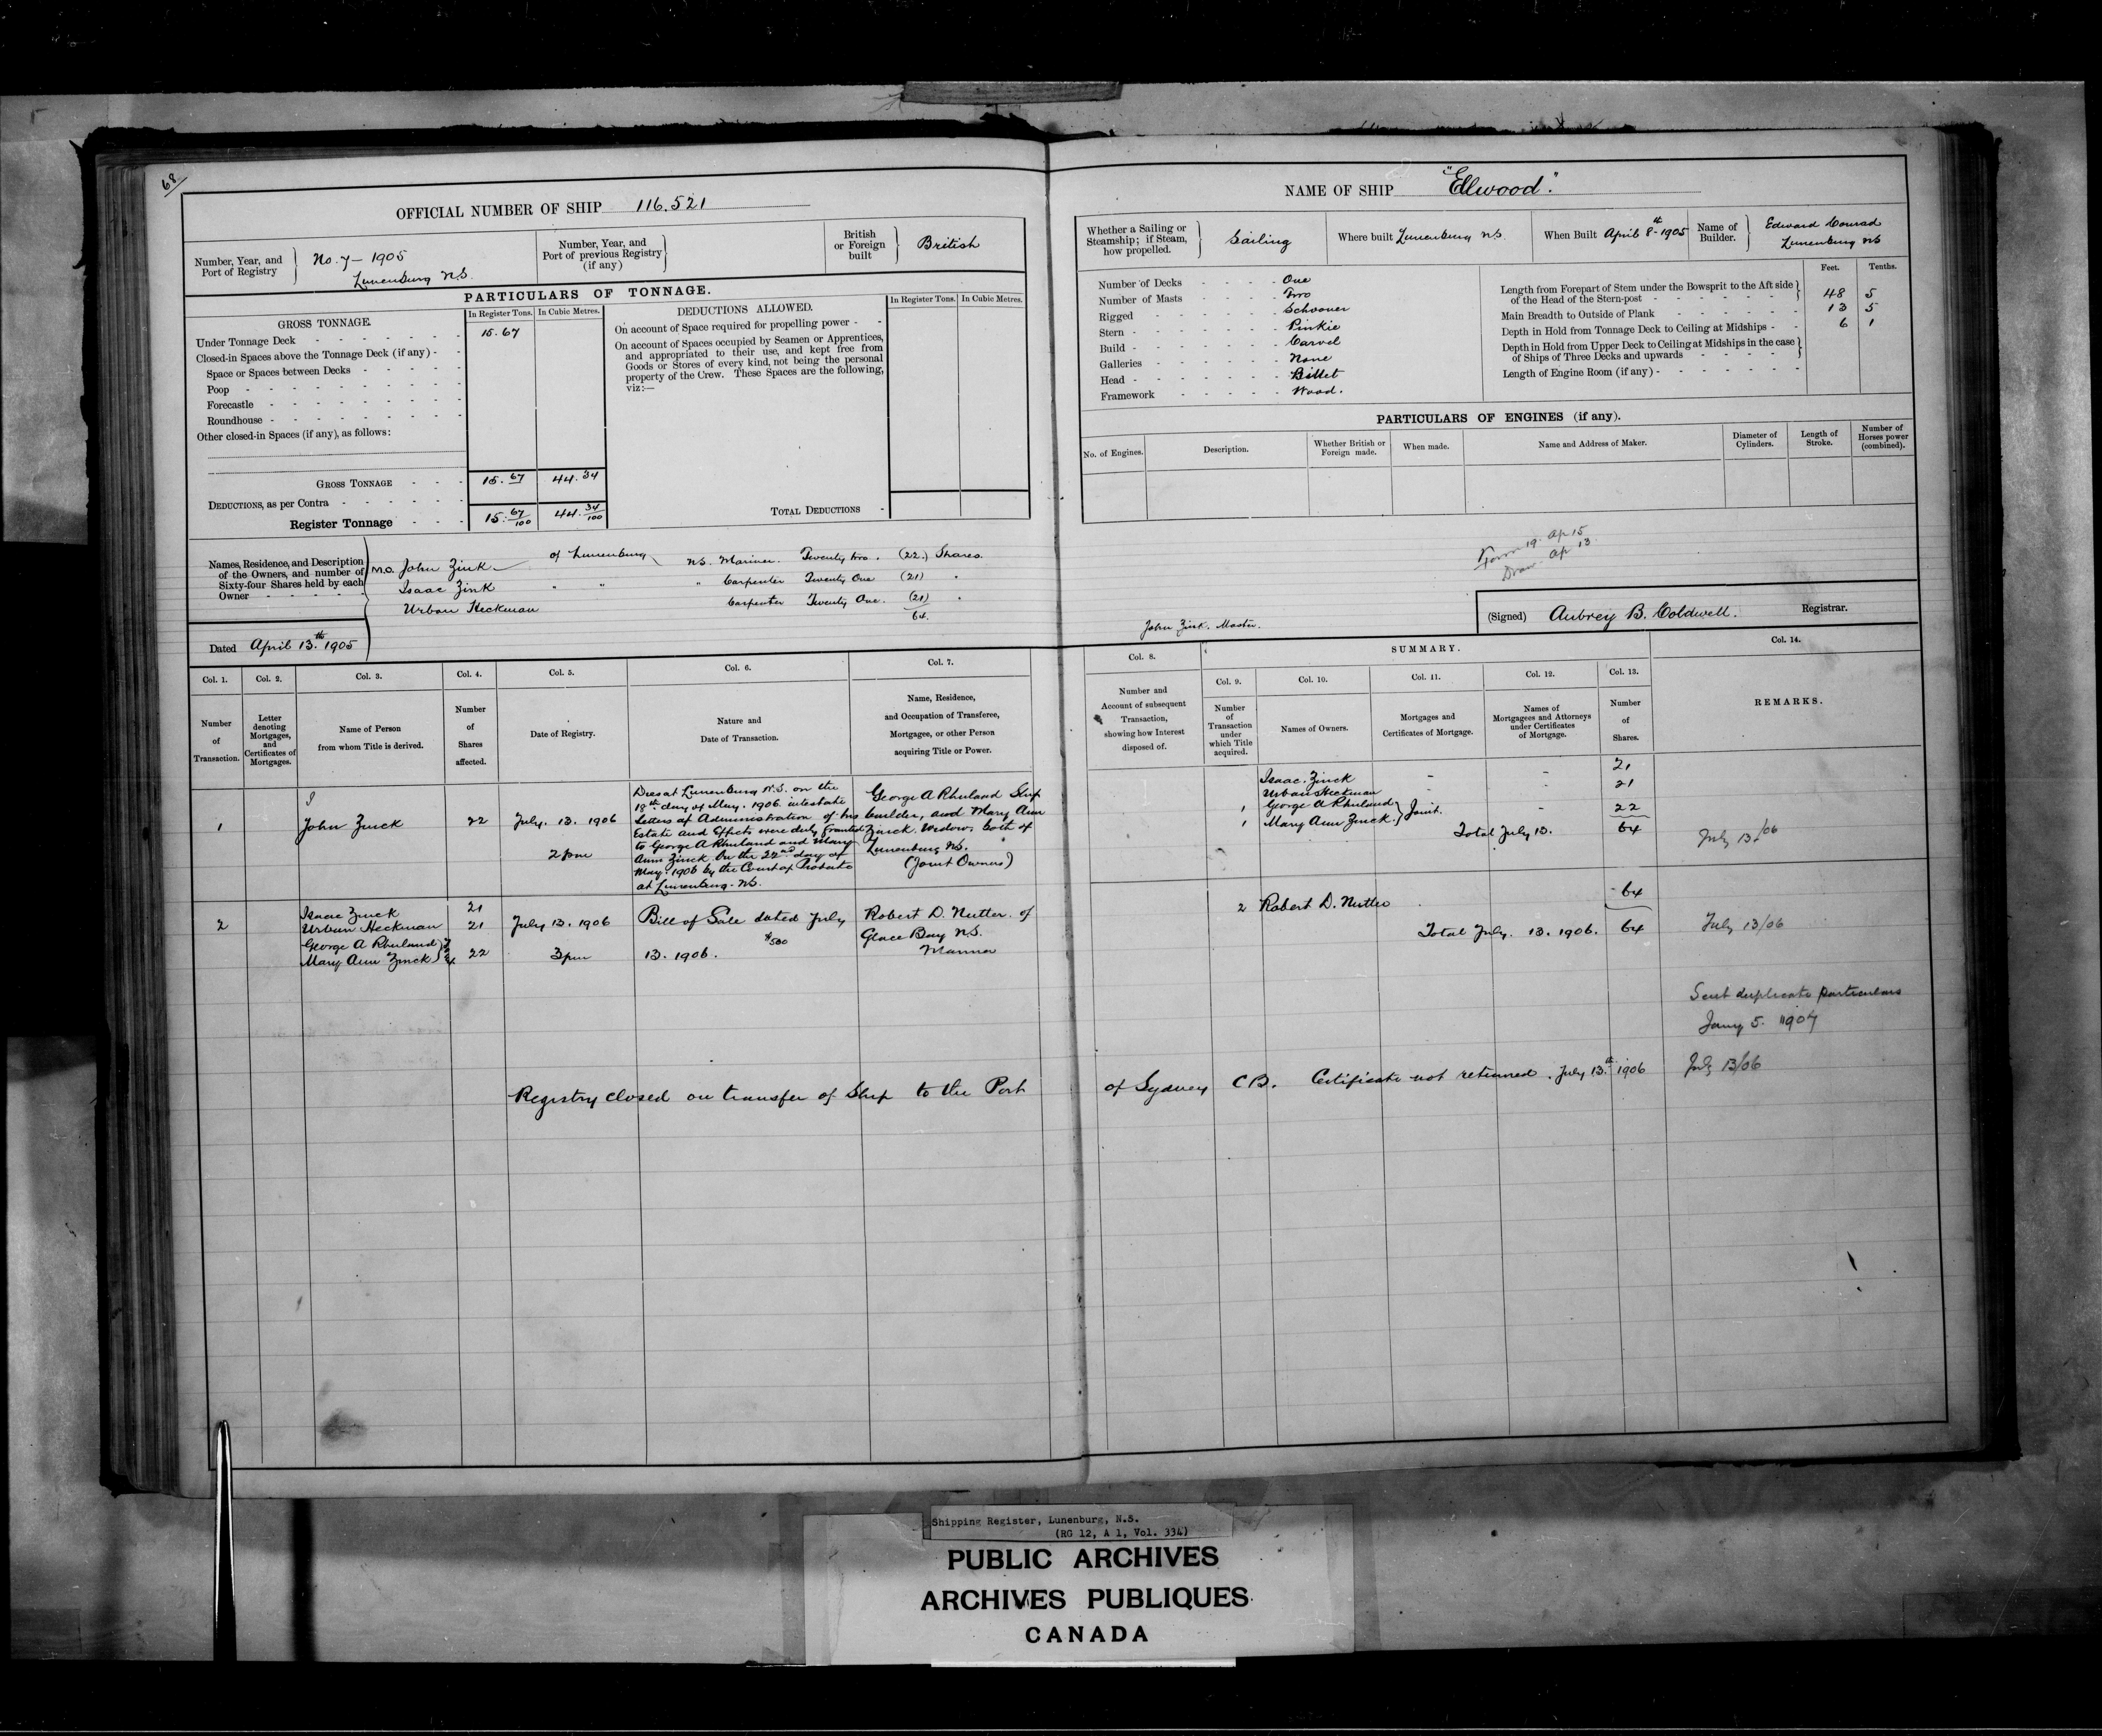 68
OFFICIAL NUMBER OF SHIP 116.521
Number, Year, and Port of Registry } No. 7 – 1905 Lunenburg N.S.
Number, Year, and Port of previous Registry (if any) }
British or Foreign built } British
PARTICULARS OF TONNAGE.
GROSS TONNAGE.
In Register Tons. In Cubic Metres.
Under Tonnage Deck 15.67
Closed-in Spaces above the Tonnage Deck (if any) -
Space or Spaces between Decks
Poop
Forecastle
Roundhouse
Other closed-in Spaces (if any), as follows:
GROSS TONNAGE 15.67 44.34
DEDUCTIONS, as per Contra
Register Tonnage 15.67/100 44.34/100
DEDUCTIONS ALLOWED.
In Register Tons. In Cubic Metres.
On account of Space required for propelling power -
On account of Spaces occupied by Seamen or Apprentices,
and appropriated to their use, and kept free from
Goods or Stores of every kind, not being the personal
property of the Crew. These Spaces are the following,
viz:—
TOTAL DEDUCTIONS
Names, Residence, and Description
of the Owners, and number of
Sixty-four Shares held by each
Owner
M.O. John Zink of Lunenburg N.S. Mariner Twenty two. (22.) Shares.
Isaac Zink " " " Carpenter Twenty One (21) "
Urban Heckman Carpenter Twenty One. (21) "
64.
Dated April 13th 1905
NAME OF SHIP "Ellwood".
Whether a Sailing or Steamship; if Steam, how propelled. } Sailing
Where built Lunenburg N.S.
When Built April 8th - 1905
Name of Builder. } Edward Conrad Lunenburg NS
Number of Decks One
Number of Masts Two
Rigged Schooner
Stern Pinkie
Build Carvel
Galleries None
Head Billet
Framework Wood.
Feet. Tenths.
Length from Forepart of Stem under the Bowsprit to the Aft side
of the Head of the Stern-post 48 5
Main Breadth to Outside of Plank 13 5
Depth in Hold from Tonnage Deck to Ceiling at Midships 6 1
Depth in Hold from Upper Deck to Ceiling at Midships in the case
of Ships of Three Decks and upwards
Length of Engine Room (if any)
PARTICULARS OF ENGINES (if any).
No. of Engines. Description. Whether British or Foreign made. When made. Name and Address of Maker. Diameter of Cylinders. Length of Stroke. Number of Horses power (combined).
Form 19. Ap 15
Draw. Ap 13.
John Zink. Master.
(Signed) Aubrey B. Coldwell. Registrar.
Col. 1. Col. 2. Col. 3. Col. 4. Col. 5. Col. 6. Col. 7.
Number of Transaction.
Letter denoting Mortgages, and Certificates of Mortgages.
Name of Person from whom Title is derived.
Number of Shares affected.
Date of Registry.
Nature and Date of Transaction.
Name, Residence, and Occupation of Transferee, Mortgagee, or other Person acquiring Title or Power.
Col. 8. SUMMARY. Col. 14.
Col. 9. Col. 10. Col. 11. Col. 12. Col. 13.
Number and Account of subsequent Transaction, showing how Interest disposed of.
Number of Transaction under which Title acquired.
Names of Owners.
Mortgages and Certificates of Mortgage.
Names of Mortgagees and Attorneys under Certificates of Mortgage.
Number of Shares.
REMARKS.
1 John Zinck 22 July. 13. 1906
2 pm
Dies at Lunenburg N.S. on the
18th day of May. 1906 intestate
Letters of Administration of his
Estate and Effects were duly granted
to George A Rhuland and Mary
Ann Zinck on the 22nd day of
May. 1906 by the Court of Probate
at Lunenburg - NS.
George A Rhuland Ship
builder, and Mary Ann
Zinck Widow. both of
Lunenburg NS.
(Joint Owners)
Isaac. Zinck - - 21
Urban Heckman 21
1 George A Rhuland } Joint. - 22
1 Mary Ann Zinck.
Total July 13. 64 July 13/06
2 Isaac Zinck 21
Urban Heckman 21
George A Rhuland
Mary Ann Zinck 22
July 13. 1906
3 pm
Bill of Sale dated July
$500
13. 1906.
Robert D. Nutter. of
Glace Bay NS.
Mariner
2 Robert D. Nutter 64
Total July. 13. 1906. 64 July 13/06
Sent duplicate particulars
Jany 5. 1907
Registry closed on transfer of Ship to the Port of Sydney C.B. Certificate not returned. July 13th 1906 July 13/06
Shipping Register, Lunenburg, N.S.
(RG 12, A 1, Vol. 334)
PUBLIC ARCHIVES
ARCHIVES PUBLIQUES
CANADA